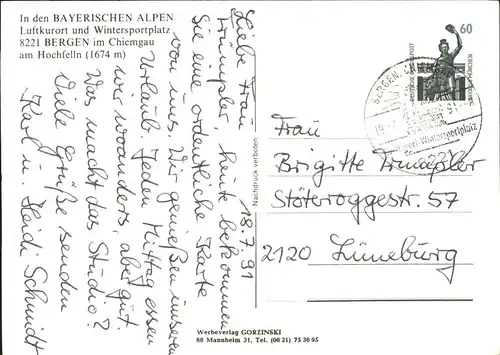 In den BAYERISCHEN ALPEN
Luftkurort und Wintersportplatz
8221 BERGEN im Chiemgau
am Hochfelln (1674 m)
18.7.91
Liebe Frau
Trümpler, heute bekommen
Sie eine ordentliche Karte
von uns. Wir genießen unseren
Urlaub. Jeden Mittag essen
wir woanders, aber gut.
Was macht das Studio?
Viele Grüße senden
Karl u. Heidi Schmidt
Nachdruck verboten
60
DEUTSCHE BUNDESPOST
BAVARIA MÜNCHEN
BERGEN, CHIEMGAU
Wintersportplatz
8221
Frau
Brigitte Trumpler
Stöteroggestr. 57
2120 Lüneburg
Werbeverlag GORZINSKI
68 Mannheim 31, Tel. (06 21) 75 36 95